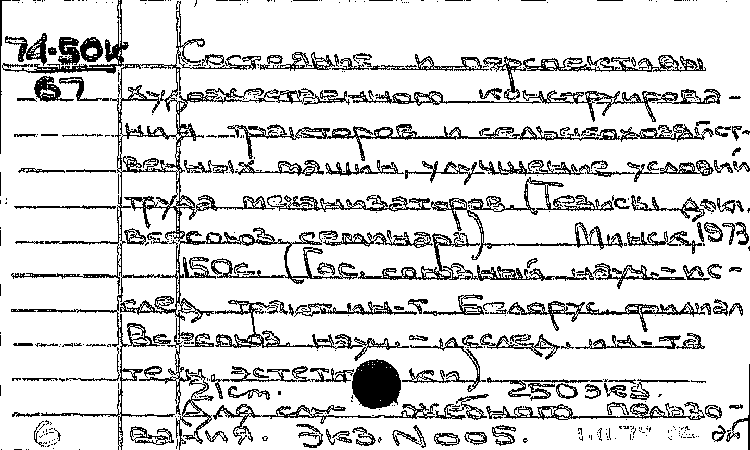 74-50к Состояние и перспективы
67 художественного конструирова-
ния тракторов и сельскохозяйст-
венных машин, улучшение условий
труда механизаторов. (Тезисы докл.
Всесоюз. семинара). Минск, 1973,
150с. (Гос. союзный науч.-ис-
след. тракт. ин-т. Белорус. филиал
Всесоюз. науч.-исслед. ин-та
техн. эстетики).
21см. 250экз.
Для служебного пользо-
вания. Экз. N 005.